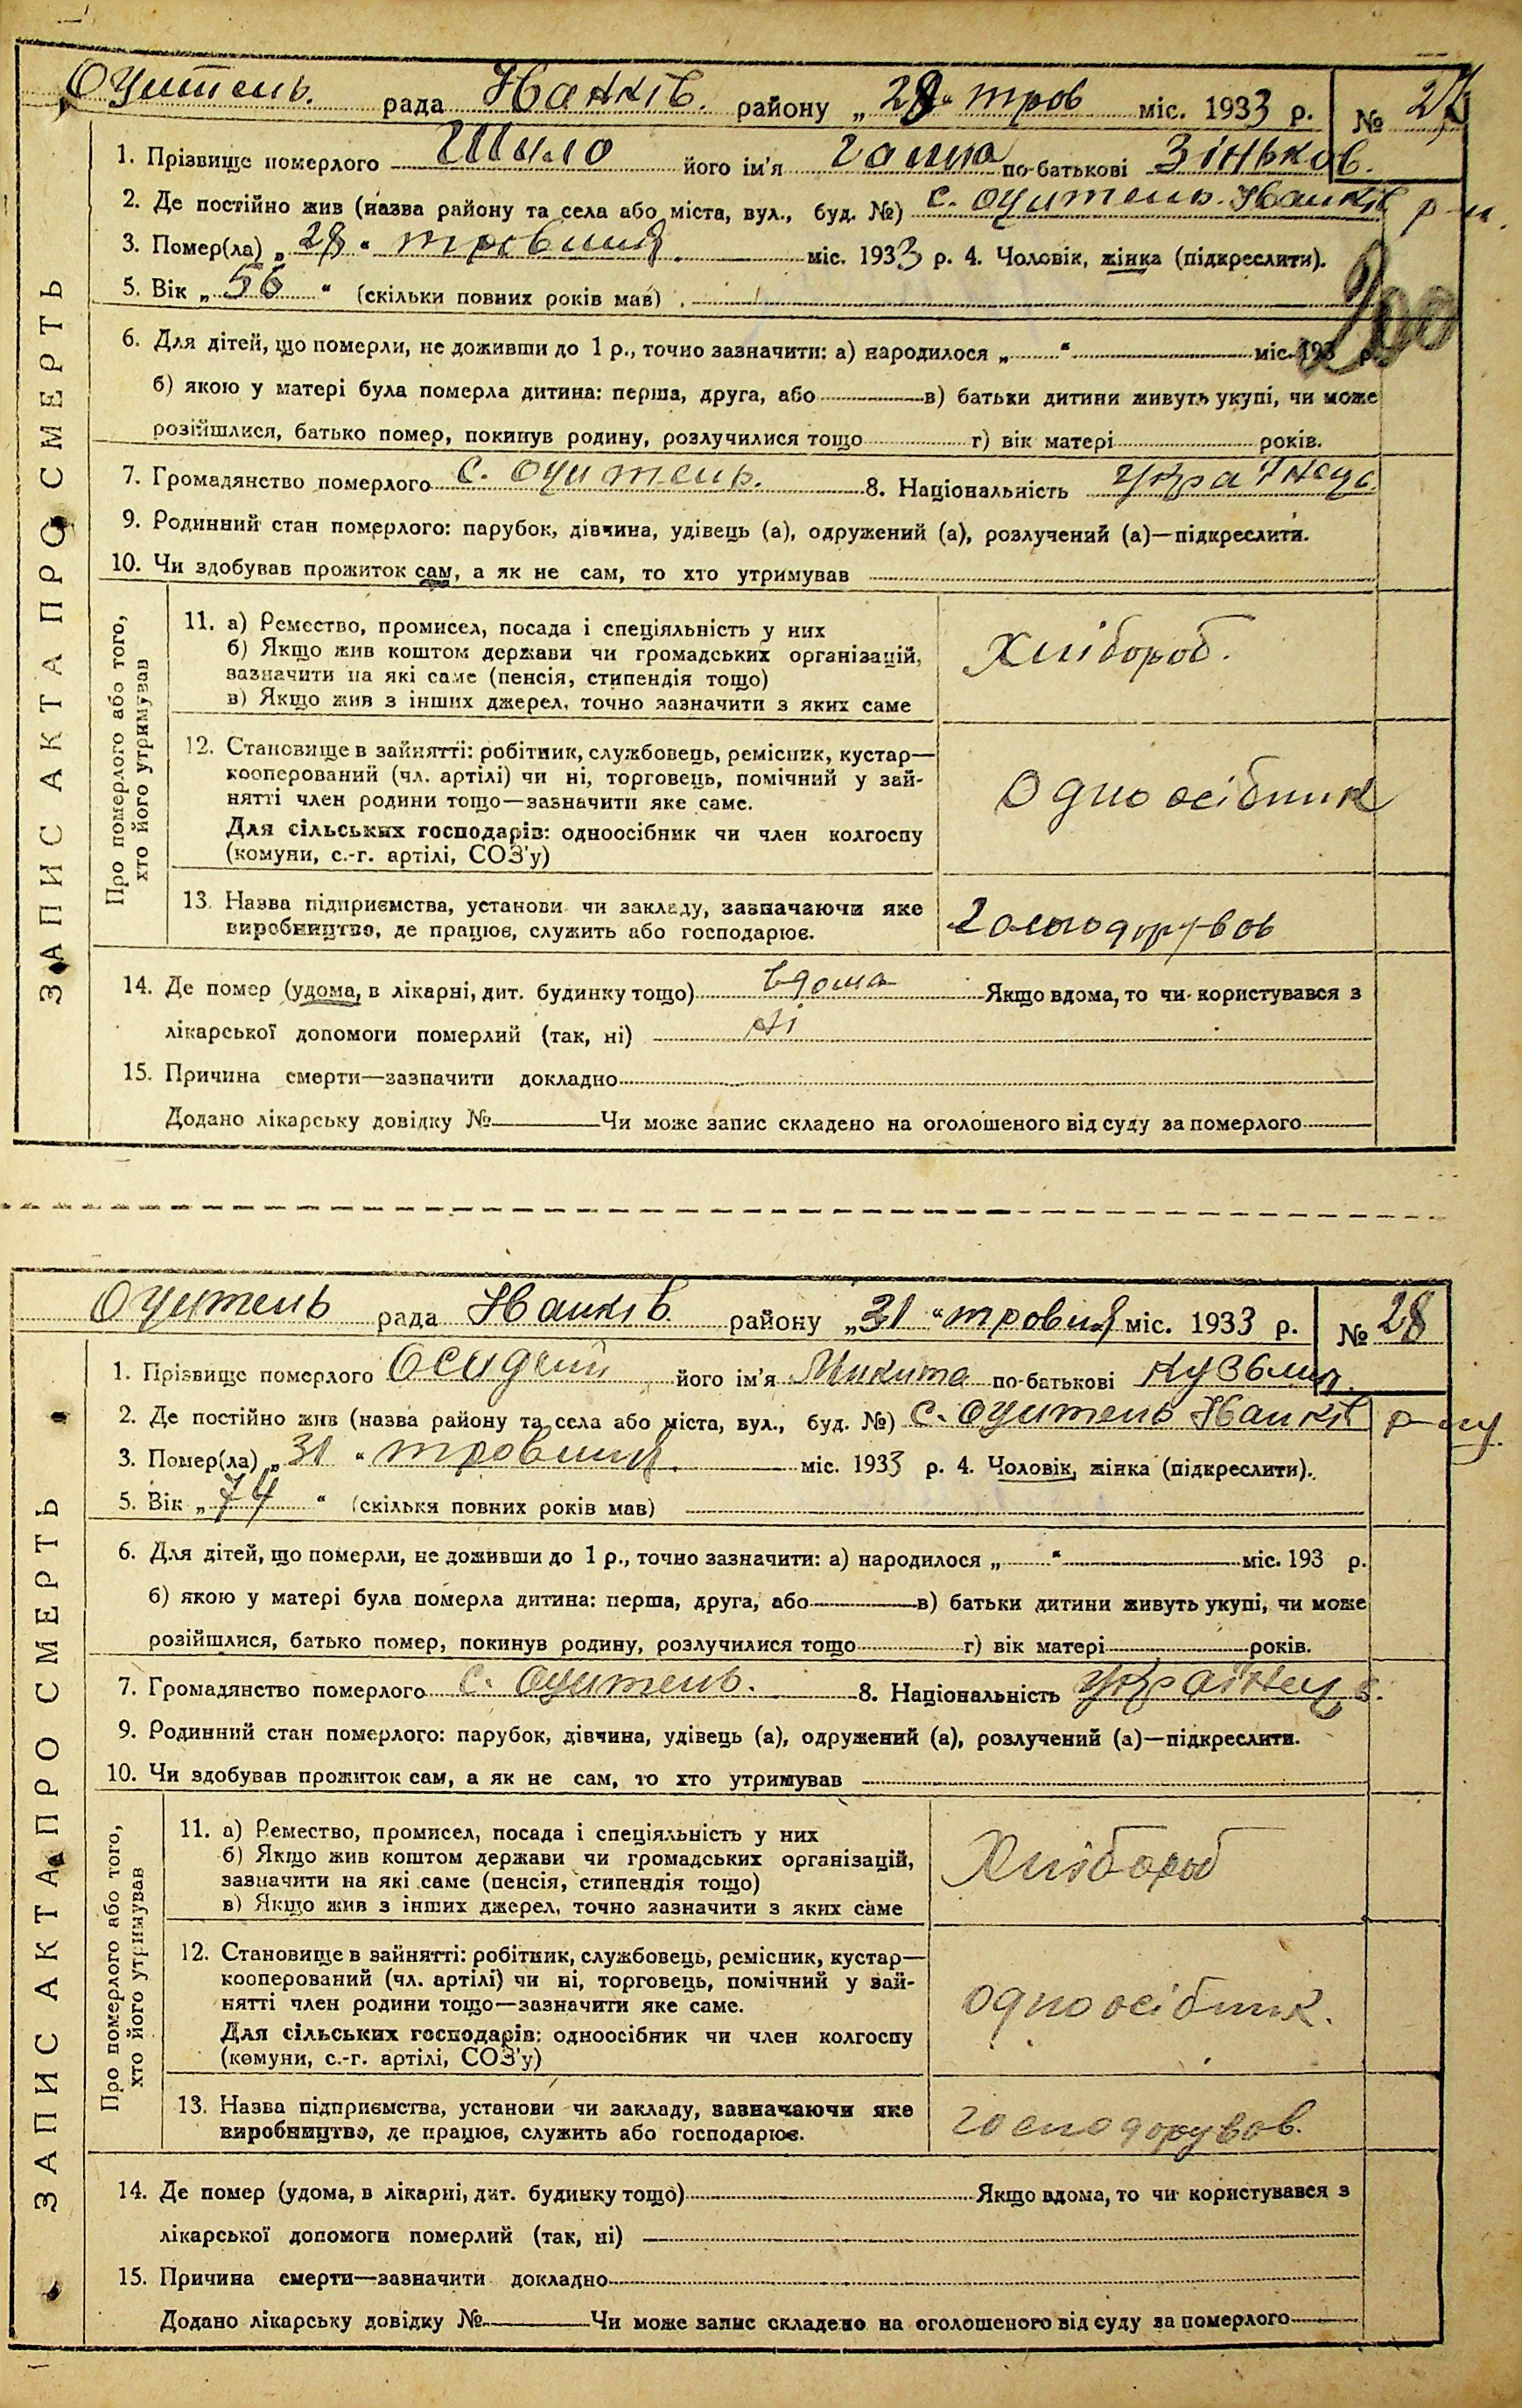 Оцитель. рада Іванків. району „28“ трав міс. 1933 р. № 27
1. Прізвище померлого Шило його ім'я Ганна по-батькові Зіньков.
2. Де постійно жив (назва району та села або міста, вул., буд. №) с. Оцитель. Іванків р-н.
3. Помер(ла) „28“ травня міс. 1933 р. 4. Чоловік, жінка (підкреслити).
5. Вік „56“ (скільки повних років мав)
200
6. Для дітей, що померли, не доживши до 1 р., точно зазначити: а) народилося „ “ міс. 193 р.
б) якою у матері була померла дитина: перша, друга, або в) батьки дитини живуть укупі, чи може
розійшлися, батько помер, покинув родину, розлучилися тощо г) вік матері років.
7. Громадянство померлого с. Оцитель. 8. Національність Українець.
9. Родинний стан померлого: парубок, дівчина, удівець (а), одружений (а), розлучений (а)—підкреслити.
10. Чи здобував прожиток сам, а як не сам, то хто утримував
ЗАПИС АКТА ПРО СМЕРТЬ
Про померлого або того,
хто його утримував
11. а) Ремество, промисел, посада і спеціяльність у них
б) Якщо жив коштом держави чи громадських організацій,
зазначити на які саме (пенсія, стипендія тощо)
в) Якщо жив з інших джерел, точно зазначити з яких саме
Хлібороб.
12. Становище в зайнятті: робітник, службовець, ремісник, кустар—
кооперований (чл. артілі) чи ні, торговець, помічний у зай-
нятті член родини тощо—зазначити яке саме.
Для сільських господарів: одноосібник чи член колгоспу
(комуни, с.-г. артілі, СОЗ'у)
Одноосібник
13. Назва підприємства, установи чи закладу, зазначаючи яке
виробництво, де працює, служить або господарює.
Господарував
14. Де помер (удома, в лікарні, дит. будинку тощо) вдома Якщо вдома, то чи користувався з
лікарської допомоги померлий (так, ні) ні
15. Причина смерти—зазначити докладно
Додано лікарську довідку № Чи може запис складено на оголошеного від суду за померлого
Оцитель рада Іванків. району „31“ травня міс. 1933 р. № 28
1. Прізвище померлого його ім'я Микита по-батькові Кузьмич.
2. Де постійно жив (назва району та села або міста, вул., буд. №) с. Оцитель Іванків р-ну.
3. Помер(ла) „31“ травня. міс. 1933 р. 4. Чоловік, жінка (підкреслити).
5. Вік „74“ (скільки повних років мав)
6. Для дітей, що померли, не доживши до 1 р., точно зазначити: а) народилося „ “ міс. 193 р.
б) якою у матері була померла дитина: перша, друга, або в) батьки дитини живуть укупі, чи може
розійшлися, батько помер, покинув родину, розлучилися тощо г) вік матері років.
7. Громадянство померлого с. Оцитель. 8. Національність Українець.
9. Родинний стан померлого: парубок, дівчина, удівець (а), одружений (а), розлучений (а)—підкреслити.
10. Чи здобував прожиток сам, а як не сам, то хто утримував
ЗАПИС АКТА ПРО СМЕРТЬ
Про померлого або того,
хто його утримував
11. а) Ремество, промисел, посада і спеціяльність у них
б) Якщо жив коштом держави чи громадських організацій,
зазначити на які саме (пенсія, стипендія тощо)
в) Якщо жив з інших джерел, точно зазначити з яких саме
Хлібороб
12. Становище в зайнятті: робітник, службовець, ремісник, кустар—
кооперований (чл. артілі) чи ні, торговець, помічний у зай-
нятті член родини тощо—зазначити яке саме.
Для сільських господарів: одноосібник чи член колгоспу
(комуни, с.-г. артілі, СОЗ'у)
одноосібник.
13. Назва підприємства, установи чи закладу, зазначаючи яке
виробництво, де працює, служить або господарює.
господарував.
14. Де помер (удома, в лікарні, дит. будинку тощо) Якщо вдома, то чи користувався з
лікарської допомоги померлий (так, ні)
15. Причина смерти—зазначити докладно
Додано лікарську довідку № Чи може запис складено на оголошеного від суду за померлого